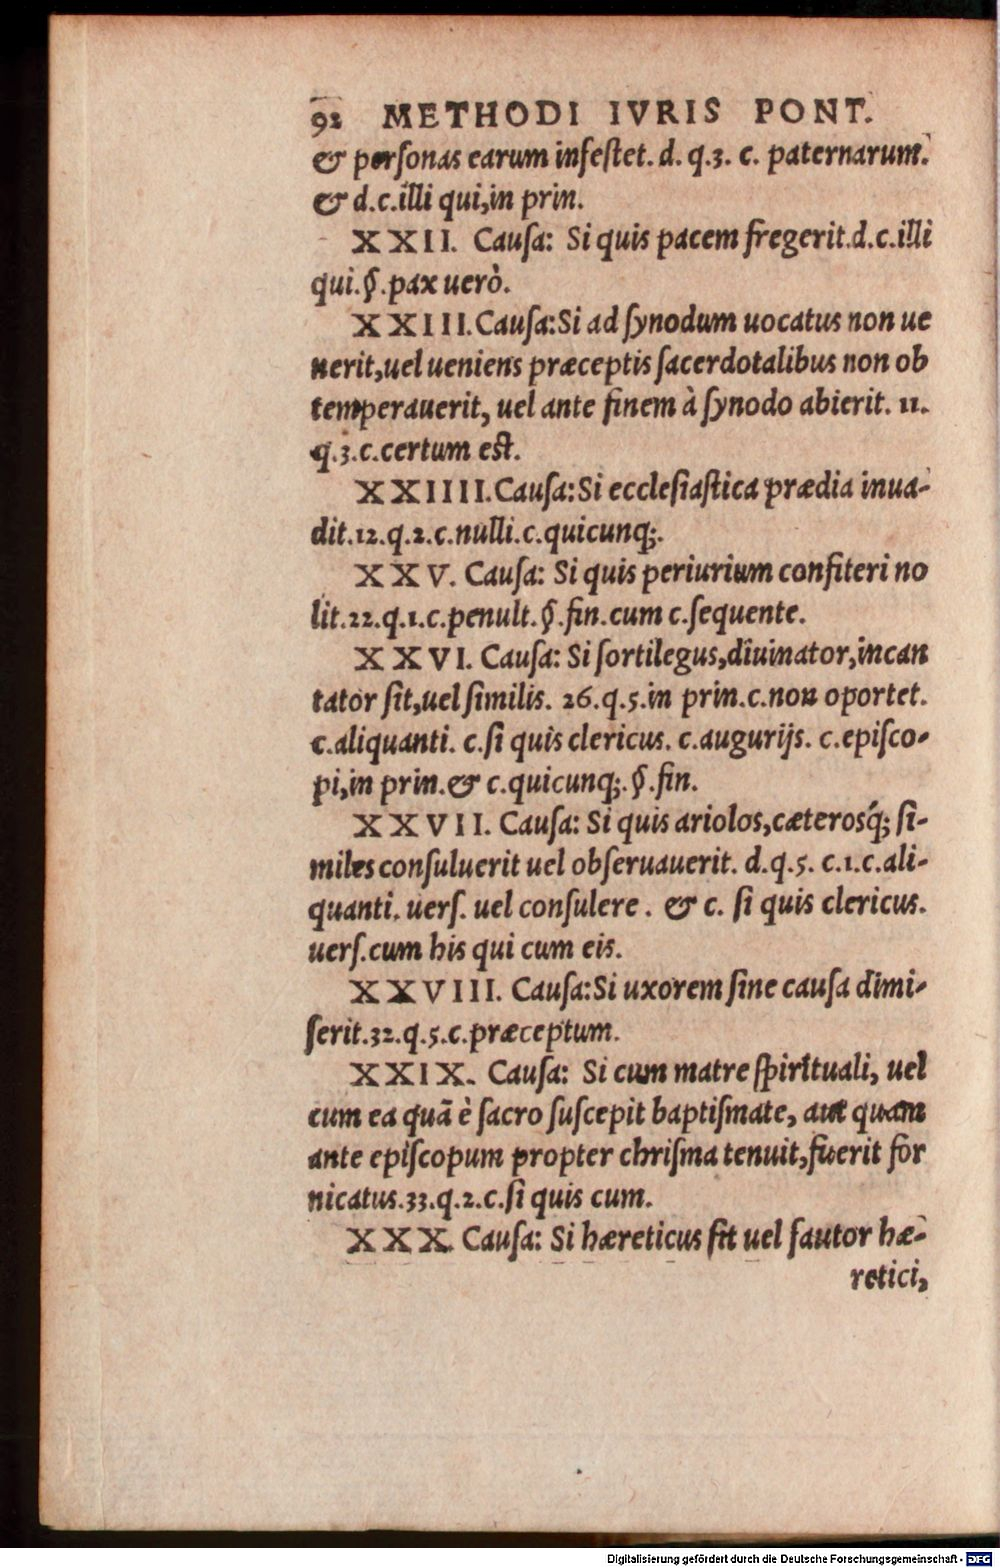 92 METHODI IVRIS PONT.
& personas earum infestet. d. q.3. c. paternarum.
& d.c.illi qui,in prin.
XXII. Causa: Si quis pacem fregerit.d.c.illi
qui.§.pax uerò.
XXIII.Causa:Si ad synodum uocatus non ue
nerit,uel ueniens præceptis sacerdotalibus non ob
temperauerit, uel ante finem à synodo abierit. 11.
q.3.c.certum est.
XXIIII.Causa:Si ecclesiastica prædia inua-
dit.12.q.2.c.nulli.c.quicunq;.
XXV. Causa: Si quis periurium confiteri no
lit.22.q.1.c.penult.§.fin.cum c.sequente.
XXVI. Causa: Si sortilegus,diuinator,incan
tator sit,uel similis. 26.q.5.in prin.c.non oportet.
c.aliquanti. c.si quis clericus. c.augurijs. c.episco-
pi,in prin.& c.quicunq;.§.fin.
XXVII. Causa: Si quis ariolos,cæterosq́; si-
miles consuluerit uel obseruauerit. d.q.5. c.1.c.ali-
quanti. uers. uel consulere. & c. si quis clericus.
uers.cum his qui cum eis.
XXVIII. Causa:Si uxorem sine causa dimi-
serit.32.q.5.c.præceptum.
XXIX. Causa: Si cum matre spirituali, uel
cum ea quā è sacro suscepit baptismate, aut quam
ante episcopum propter chrisma tenuit,fuerit for
nicatus.33.q.2.c.si quis cum.
XXX. Causa: Si hæreticus sit uel fautor hæ-
retici,
Digitalisierung gefördert durch die Deutsche Forschungsgemeinschaft - DFG